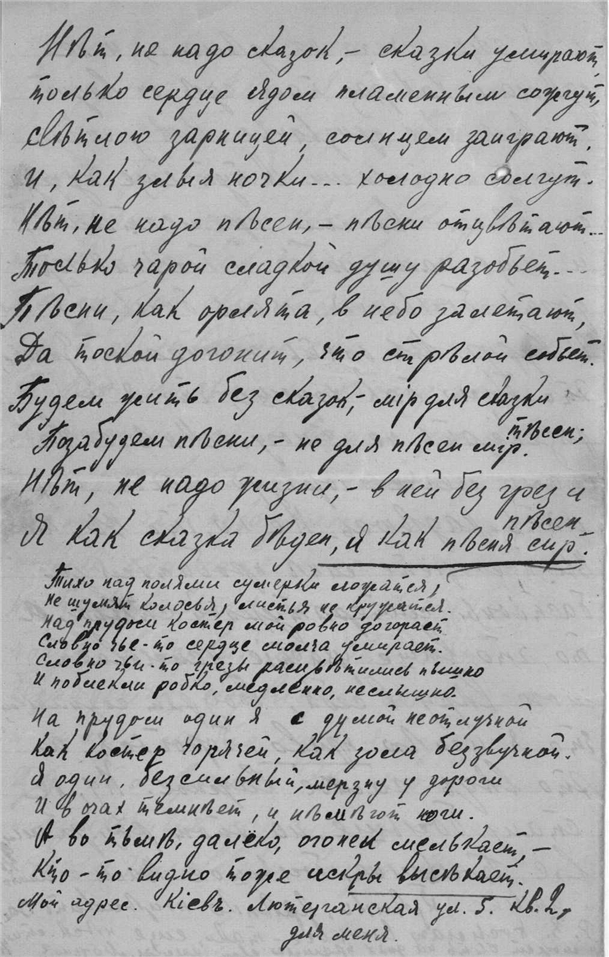 Нѣт, не надо сказок, – сказки умирают,
только сердце ядом пламенным сожгут,
свѣтлою зарницей, солнцем заиграют,
и, как злыя ночки... холодно солгут.
Нѣт, не надо пѣсен, – пѣсни отцвѣтают...
Только чарой сладкой душу разобьет...
Пѣсни, как орлята, в небо залетают,
Да тоской догонит, что стрѣлой собьет.
Будем жить без сказок, – мір для сказки
тѣсен;
Позабудем пѣсни, – не для пѣсен мір.
Нѣт, не надо жизни, – в ней без грез и
пѣсен
Я как сказка бѣден, я как пѣсня сир.
Тихо над полями сумерки ложатся,
Не шумят колосья, листья не кружатся.
Над прудом костер мой ровно догорает
Словно чье-то сердце молча умирает.
Словно чьи-то грезы расцвѣтились пышно
И поблекли робко, медленно, неслышно.
На прудом один я с думой неотлучной
Как костер горячей, как зола беззвучной.
Я один, безсильный, мерзну у дороги
И в очах темнѣет, и нѣмѣют ноги.
А во тьмѣ, далеко, огонек мелькает, –
Кто-то видно тоже искры высѣкает.
Мой адрес. Кіевъ. Лютеранская ул. 5. кв. 2,
для меня.